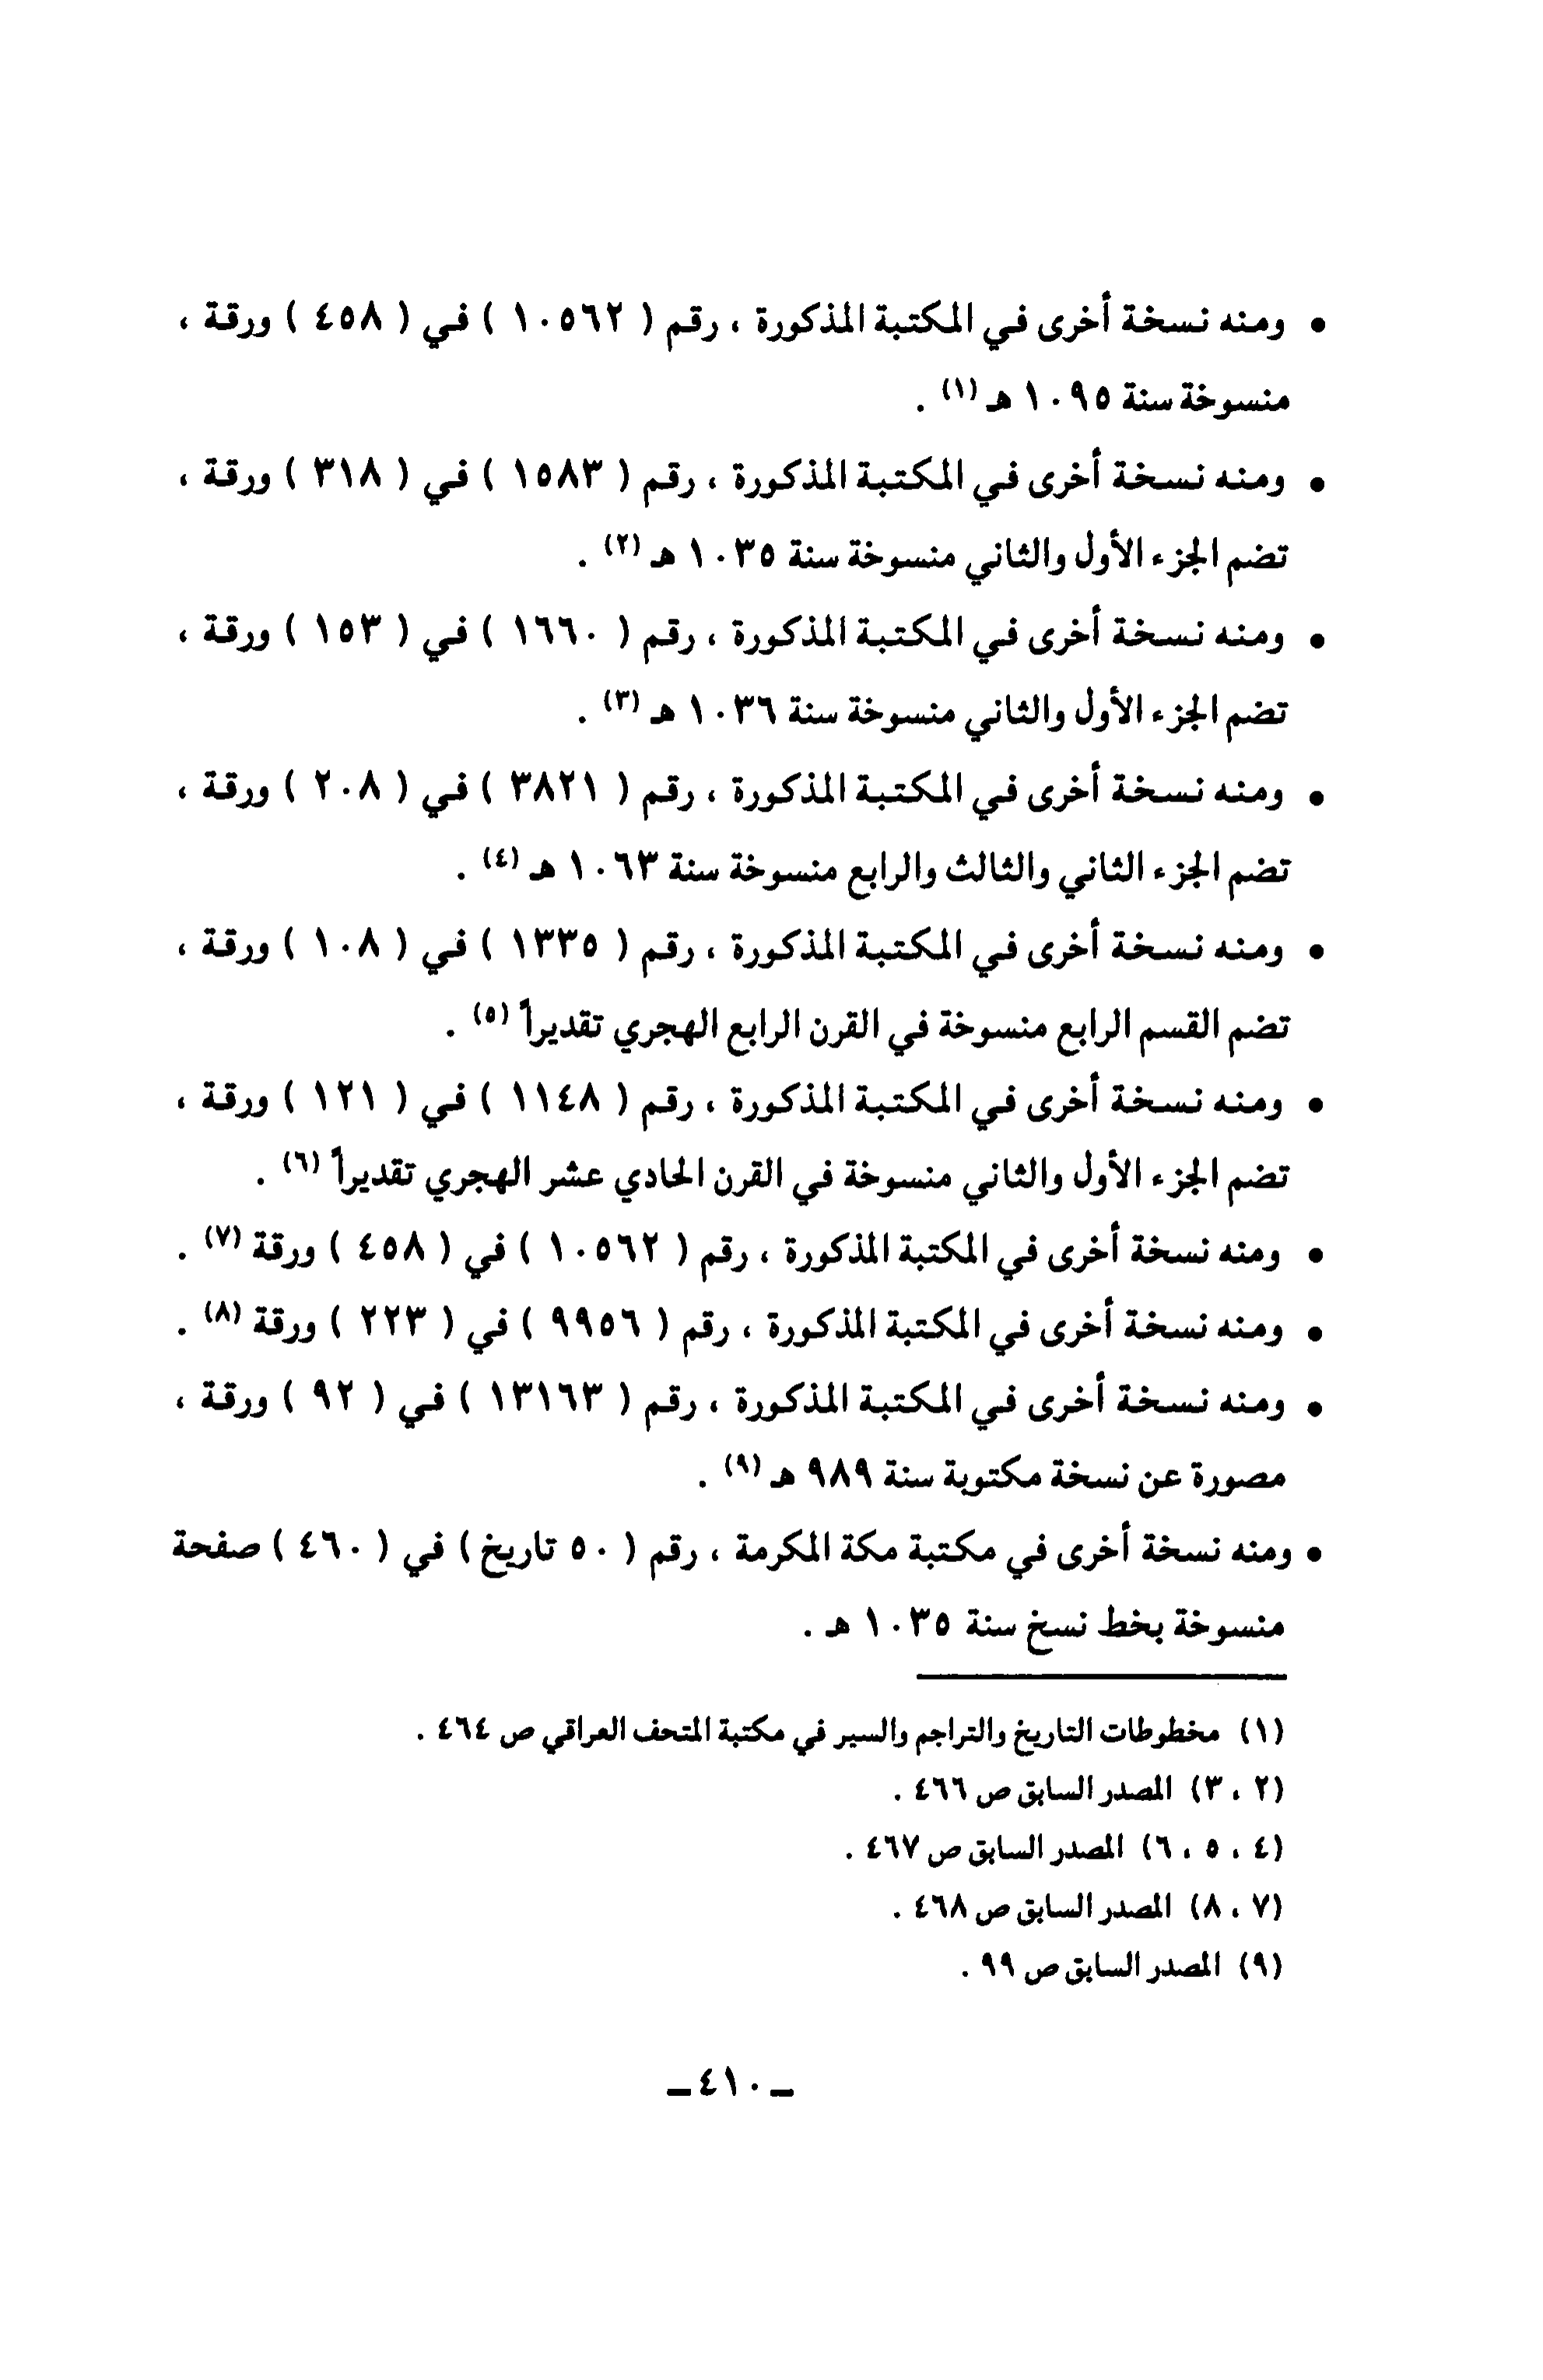 • ومنه نسخة أخرى في المكتبة المذكورة ، رقم ( ١٠٥٦٢ ) في ( ٤٥٨ ) ورقة ،
منسوخة سنة ١٠٩٥ هـ (١) .
• ومنه نسخة أخرى في المكتبة المذكورة ، رقم ( ١٥٨٣ ) في ( ٣١٨ ) ورقة ،
تضم الجزء الأول والثاني منسوخة سنة ١٠٣٥ هـ (٢) .
• ومنه نسخة أخرى في المكتبة المذكورة ، رقم ( ١٦٦٠ ) في ( ١٥٣ ) ورقة ،
تضم الجزء الأول والثاني منسوخة سنة ١٠٣٦ هـ (٣) .
• ومنه نسخة أخرى في المكتبة المذكورة ، رقم ( ٣٨٢١ ) في ( ٢٠٨ ) ورقة ،
تضم الجزء الثاني والثالث والرابع منسوخة سنة ١٠٦٣ هـ (٤) .
• ومنه نسخة أخرى في المكتبة المذكورة ، رقم ( ١٣٣٥ ) في ( ١٠٨ ) ورقة ،
تضم القسم الرابع منسوخة في القرن الرابع الهجري تقديراً (٥) .
• ومنه نسخة أخرى في المكتبة المذكورة ، رقم ( ١١٤٨ ) في ( ١٢١ ) ورقة ،
تضم الجزء الأول والثاني منسوخة في القرن الحادي عشر الهجري تقديراً (٦) .
• ومنه نسخة أخرى في المكتبة المذكورة ، رقم ( ١٠٥٦٢ ) في ( ٤٥٨ ) ورقة (٧) .
• ومنه نسخة أخرى في المكتبة المذكورة ، رقم ( ٩٩٥٦ ) في ( ٢٢٣ ) ورقة (٨) .
• ومنه نسخة أخرى في المكتبة المذكورة ، رقم ( ١٣١٦٣ ) في ( ٩٢ ) ورقة ،
مصورة عن نسخة مكتوبة سنة ٩٨٩ هـ (٩) .
• ومنه نسخة أخرى في مكتبة مكة المكرمة ، رقم ( ٥٠ تاريخ ) في ( ٤٦٠ ) صفحة
منسوخة بخط نسخ سنة ١٠٣٥ هـ .
(١) مخطوطات التاريخ والتراجم والسير في مكتبة المتحف العراقي ص ٤٦٤ .
(٢ ، ٣) المصدر السابق ص ٤٦٦ .
(٤ ، ٥ ، ٦) المصدر السابق ص ٤٦٧ .
(٧ ، ٨) المصدر السابق ص ٤٦٨ .
(٩) المصدر السابق ص ٩٩ .
ـ ٤١٠ ـ